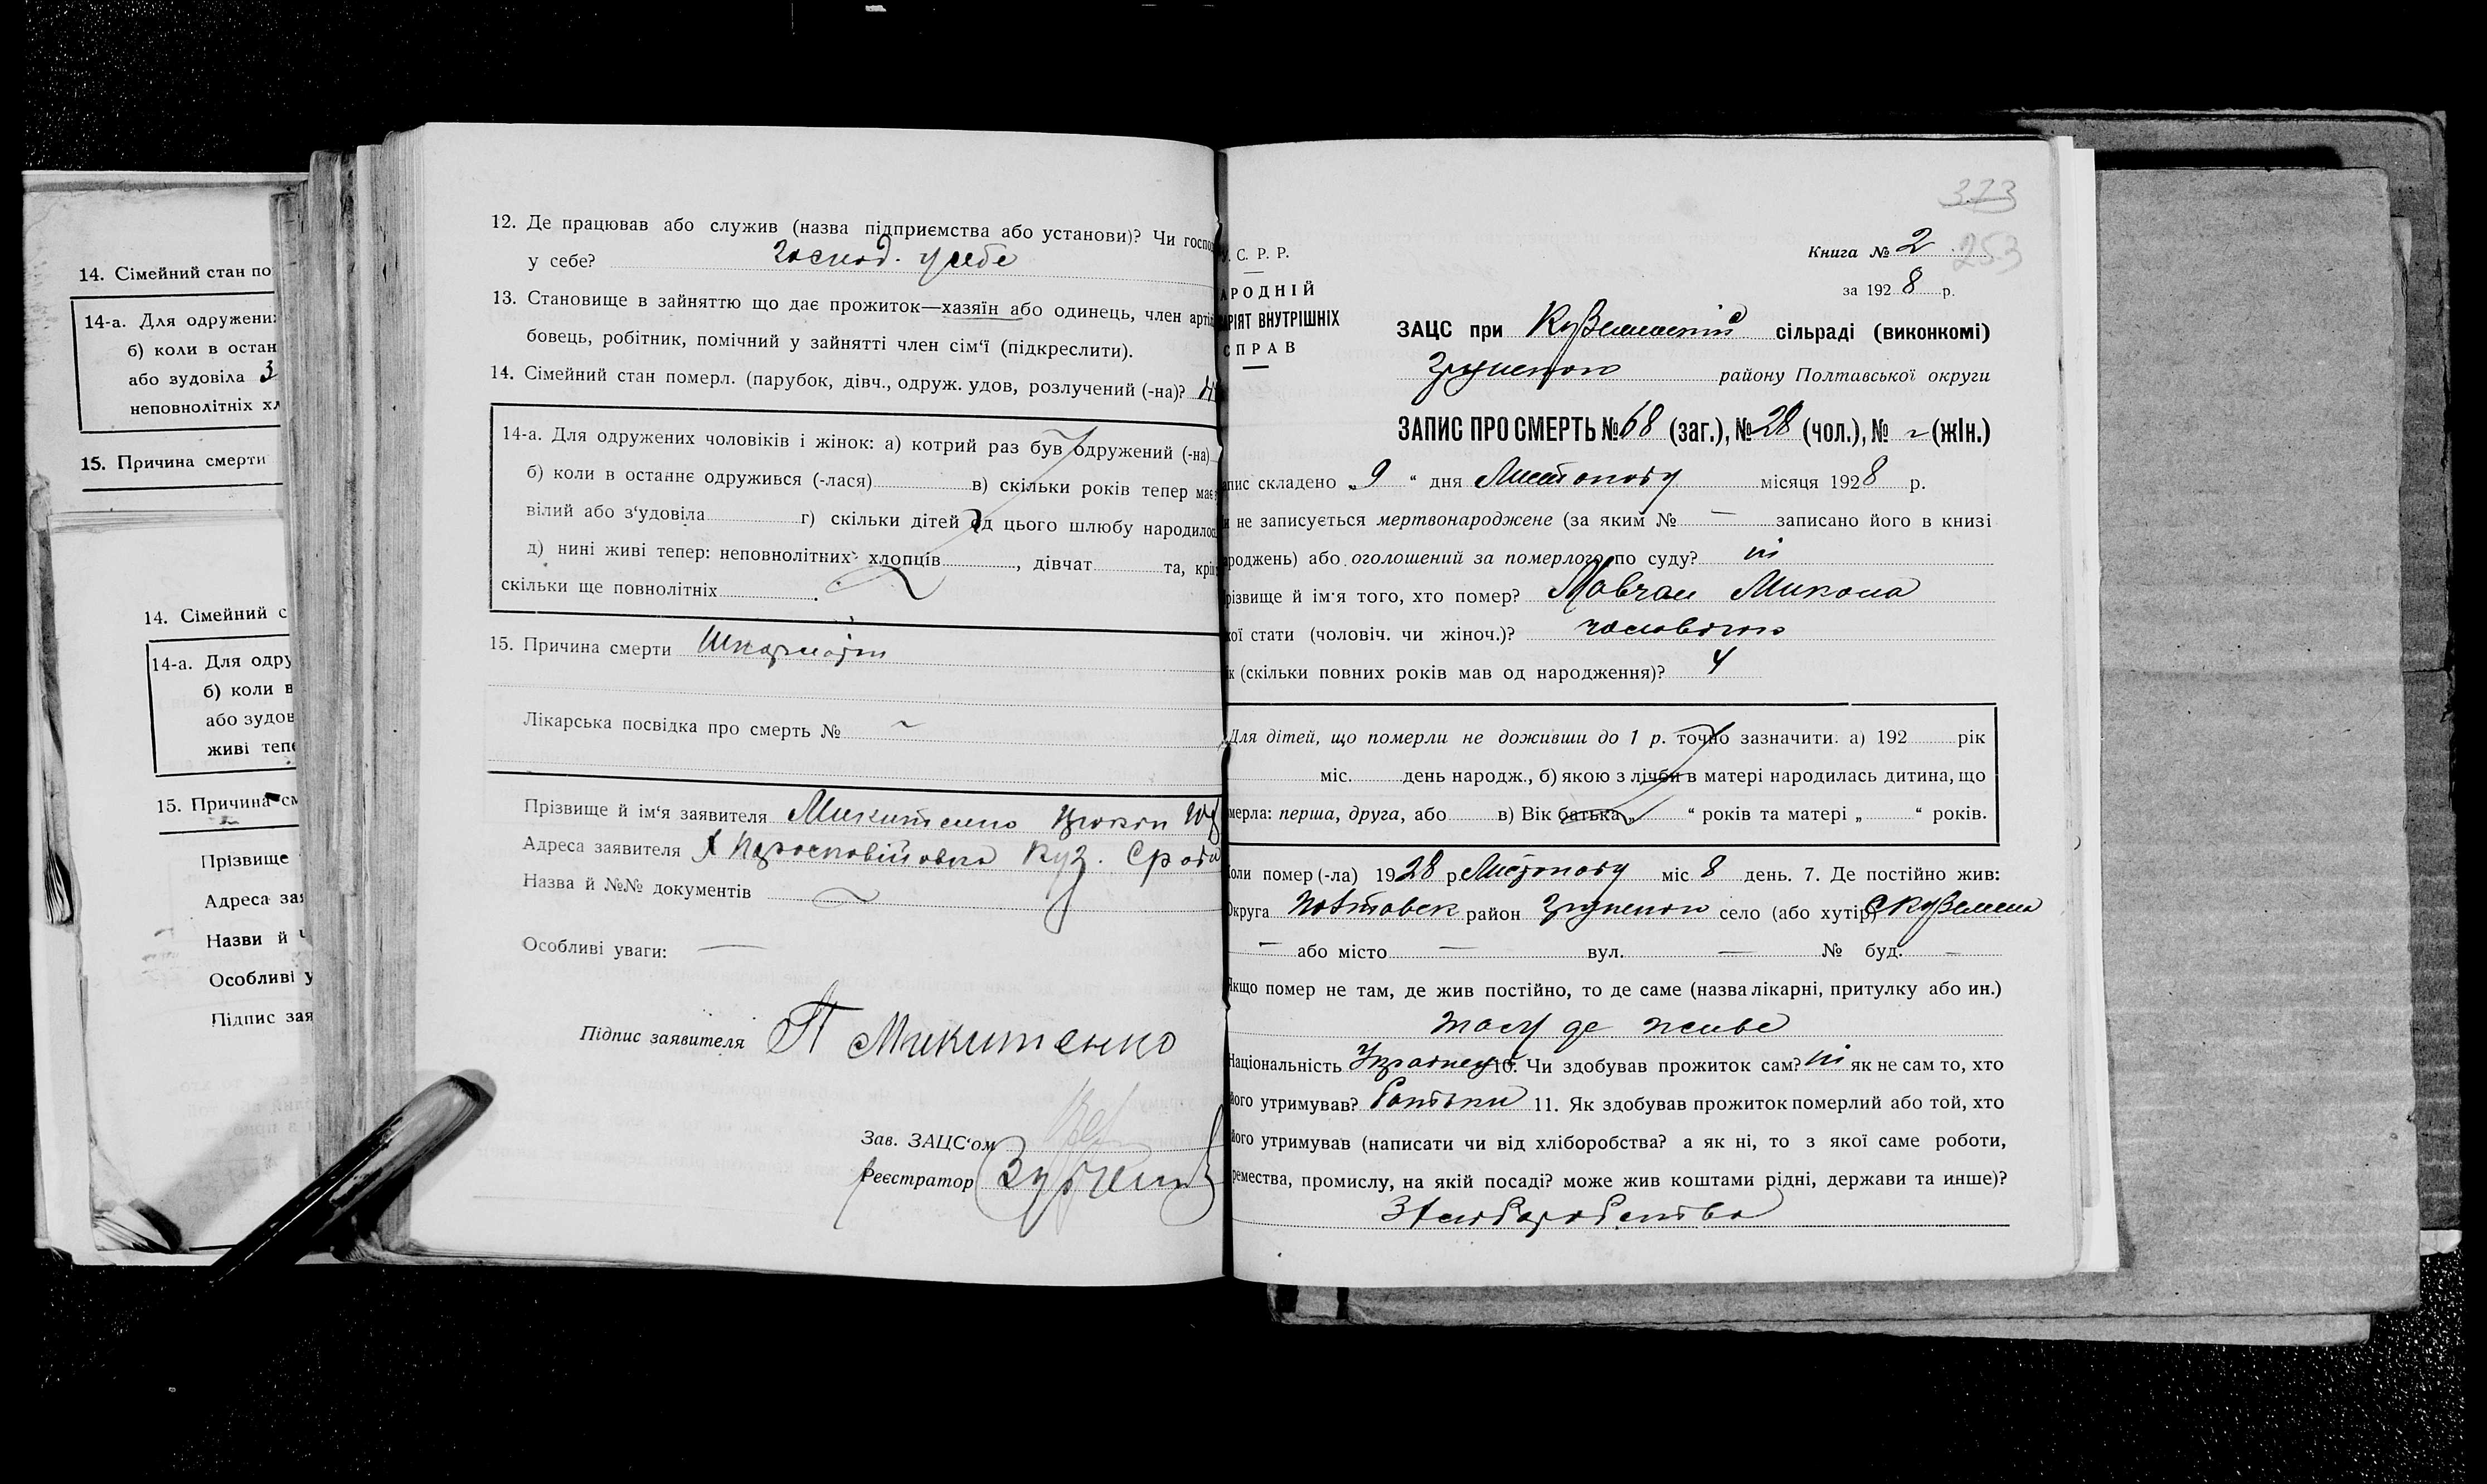 14. Сімейний стан по
14-а. Для одружени
б) коли в остан
або зудовіла З
неповнолітніх хл
15. Причина смерти
14. Сімейний с
14-а. Для одру
б) коли в
або зудов
живі тепе
15. Причина см
Прізвище
Адреса зая
Назви й
Особливі у
Підпис зая
12. Де працював або служив (назва підприємства або установи)? Чи господ
у себе? господ. у себе
13. Становище в зайняттю що дає прожиток—хазяїн або одинець, член арті
бовець, робітник, помічний у зайнятті член сім'ї (підкреслити).
14. Сімейний стан померл. (парубок, дівч., одруж. удов, розлучений (-на)?
14-а. Для одружених чоловіків і жінок: а) котрий раз був одружений (-на)
б) коли в останнє одружився (-лася) в) скільки років тепер має
вілий або з'удовіла г) скільки дітей од цього шлюбу народилос
д) нині живі тепер: неповнолітних хлопців , дівчат та, крі
скільки ще повнолітніх .
15. Причина смерти Шкарлатін
Лікарська посвідка про смерть № ~
Прізвище й ім'я заявителя Микитенко
Адреса заявителя Х Парасковійовка Куз.
Назва й №№ документів
Особливі уваги: —
Підпис заявителя П Микитенко
Зав. ЗАЦС'ом
Реєстратор
373
253
У. С. Р. Р.
АРОДНІЙ
АРІЯТ ВНУТРІШНІХ
СПРАВ
Книга № 2
за 1928 р.
ЗАЦС при Куземенській сільраді (виконкомі)
Грунском району Полтавської округи
ЗАПИС ПРО СМЕРТЬ № 68 (заг.), № 28 (чол.), № ~ (жін.)
апис складено „9“ дня Листопаду місяця 1928 р.
и не записується мертвонароджене (за яким № — записано його в книзі
роджень) або оголошений за померлого по суду? ні
різвище й ім'я того, хто помер? Мовчан Микола
кої стати (чоловіч. чи жіноч.)? чоловічого
ік (скільки повних років мав од народження)? 4
Для дітей, що померли не доживши до 1 р. точно зазначити. а) 192 рік
міс. день народж., б) якою з лічби в матері народилась дитина, що
мерла: перша, друга, або в) Вік батька „ “ років та матері „ “ років.
Коли помер (-ла) 1928 р Листопаду міс 8 день. 7. Де постійно жив:
Округа Полтавськ район село (або хутір) С Куземена
— або місто — вул. — № буд. —
Якщо помер не там, де жив постійно, то де саме (назва лікарні, притулку або ин.)
там де живе
Національність Українец 10. Чи здобував прожиток сам? ні як не сам то, хто
його утримував? батьки 11. Як здобував прожиток померлий або той, хто
його утримував (написати чи від хліборобства? а як ні, то з якої саме роботи,
ремества, промислу, на якій посаді? може жив коштами рідні, держави та инше)?
З хліборобства